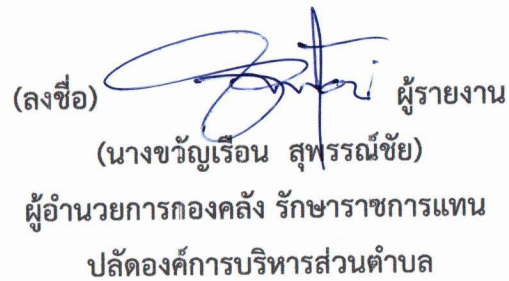 (ลงชื่อ) ผู้รายงาน
(นางขวัญเรือน สุพรรณ์ชัย)
ผู้อำนวยการกองคลัง รักษาราชการแทน
ปลัดองค์การบริหารส่วนตำบล